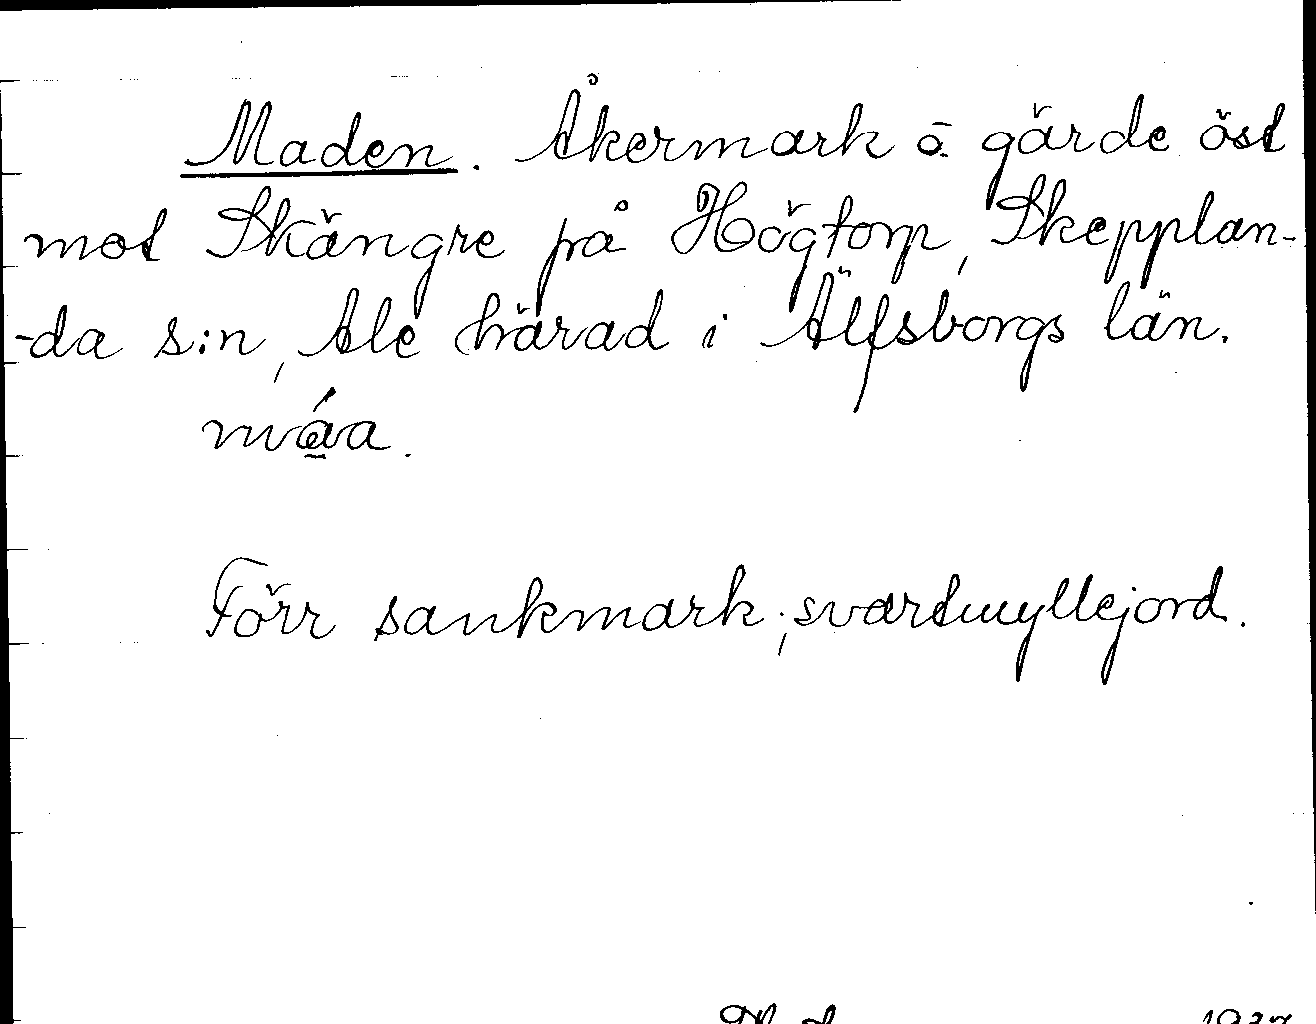 Maden. Åkermark å gärde öst
mot Skängre på Högtorp, Skepplan-
-da s:n, Ale härad i Älfsborgs län.
Förr sankmark; svartmyllejord.